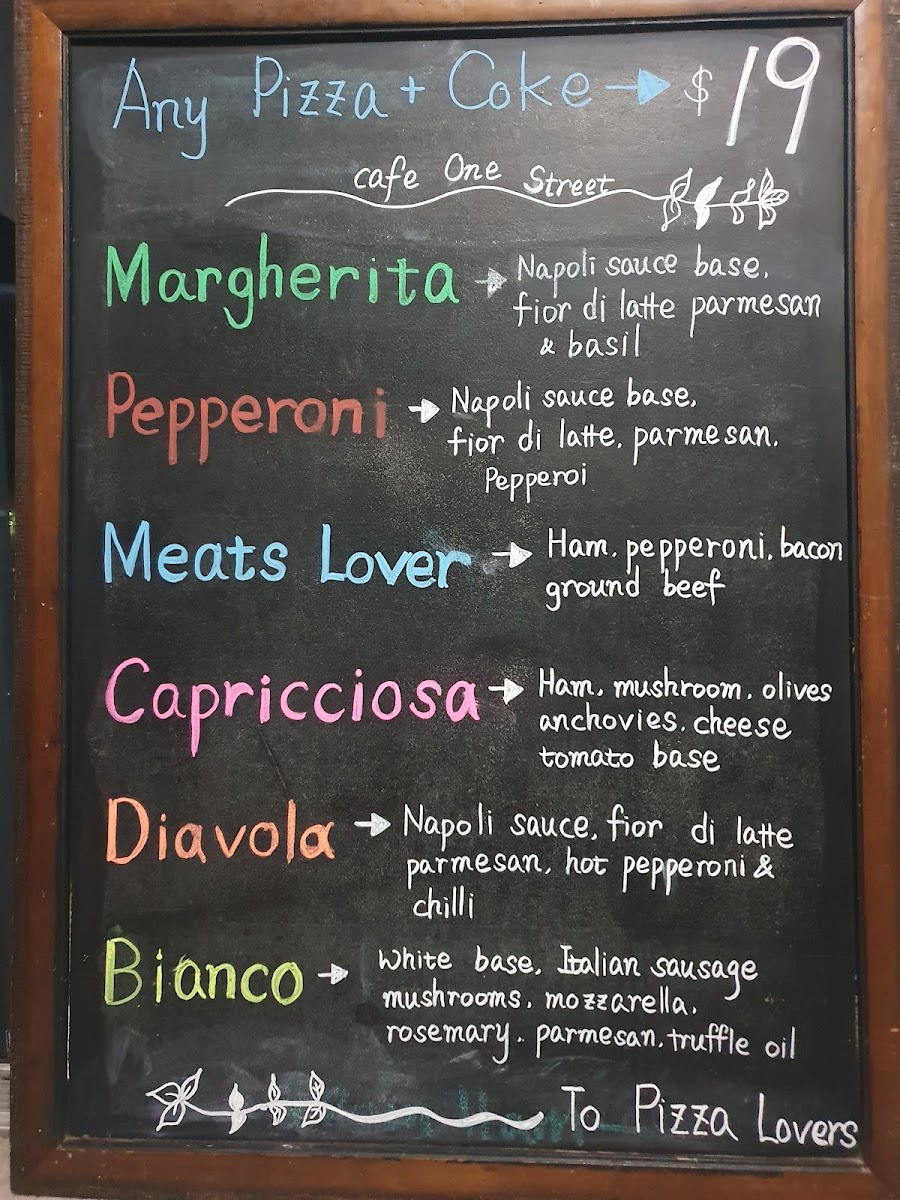 Any Pizza + Coke → $ 19
cafe One Street
Margherita → Napoli sauce base,
fior di latte parmesan
& basil
Pepperoni → Napoli sauce base,
fior di latte, parmesan,
Pepperoi
Meats Lover → Ham, pepperoni, bacon
ground beef
Capricciosa → Ham, mushroom, olives
anchovies, cheese
tomato base
Diavola → Napoli sauce, fior di latte
parmesan, hot pepperoni &
chilli
Bianco → White base, Italian sausage
mushrooms, mozzarella,
rosemary, parmesan, truffle oil
To Pizza Lovers